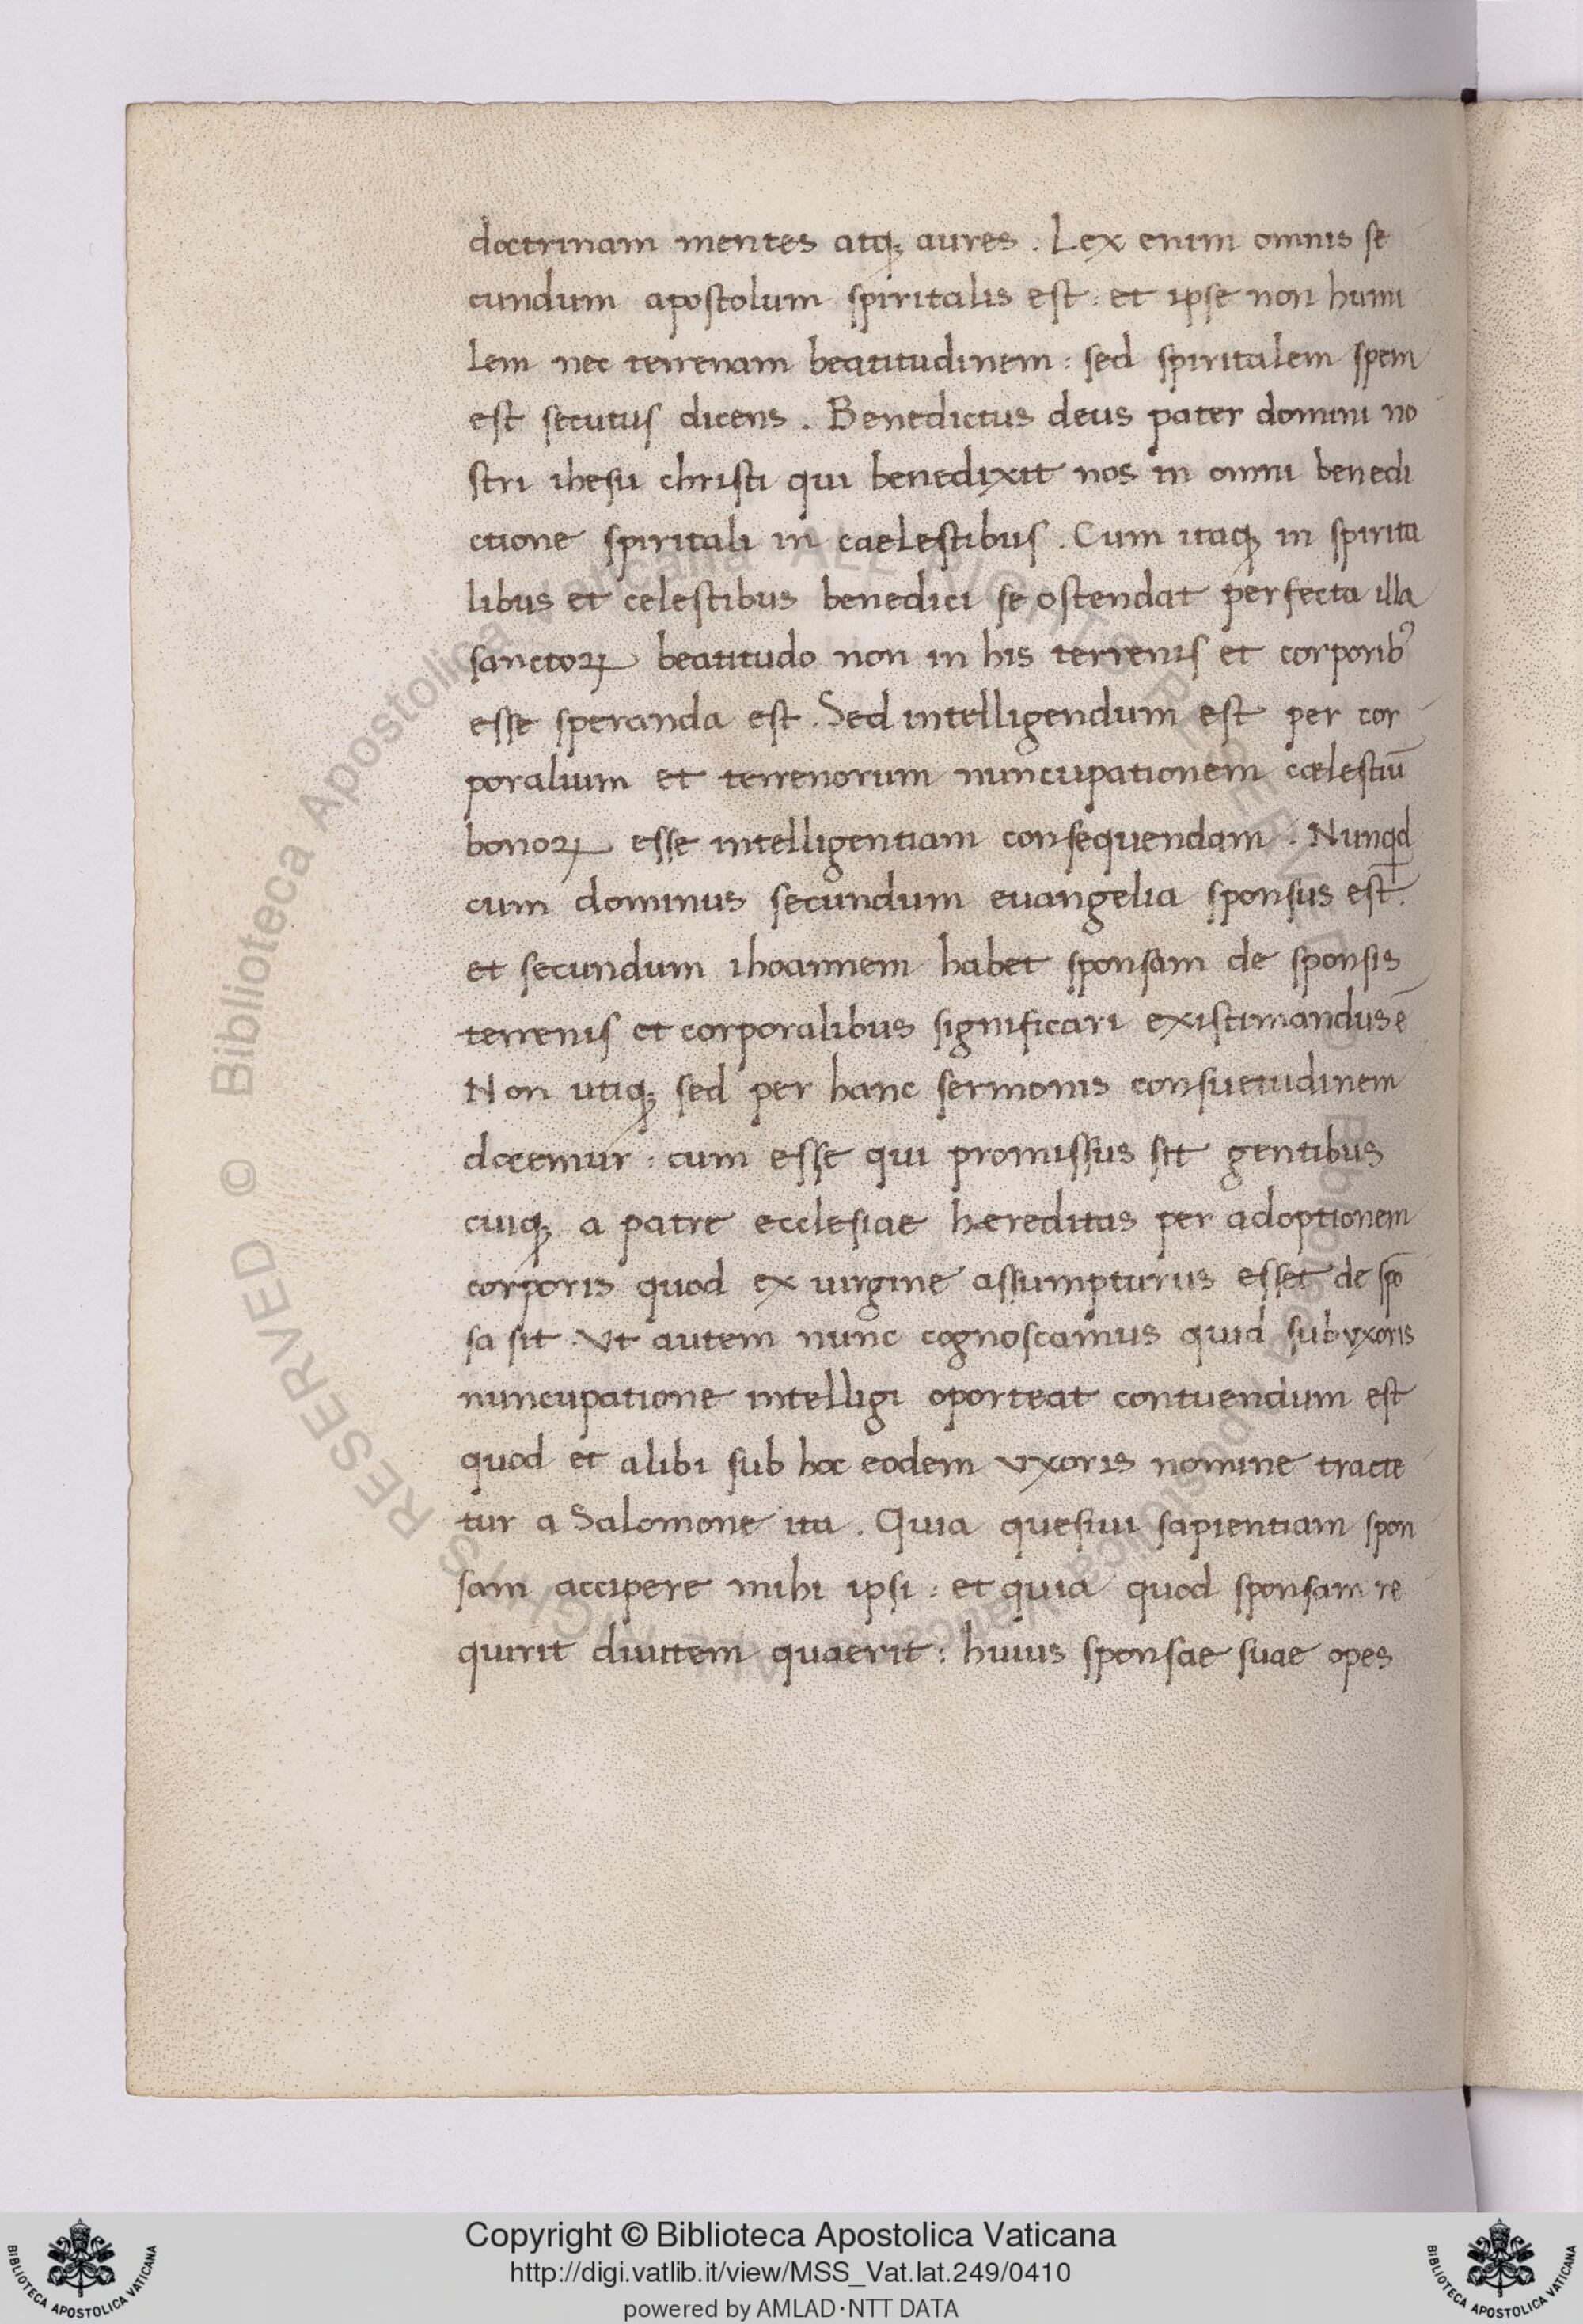 doctrinam mentes atq; aures . Lex enim omnis se
cundum apostolum spiritalis est : et ipse non humi
lem nec terrenam beatitudinem : sed spiritalem spem
est secutus dicens . Benedictus deus pater domini no
stri ihesu christi qui benedixit nos in omni benedi
ctione spiritali in caelestibus . Cum itaq; in spirita
libus et celestibus benedici se ostendat perfecta illa
sanctoꝝ beatitudo non in his terrenis et corporibꝰ
esse speranda est . Sed intelligendum est per cor
poralium et terrenorum nuncupationem cælestiū
bonoꝝ esse intelligentiam consequendam . Nunqd
cum dominus secundum euangelia sponsus est .
et secundum ihoannem habet sponsam de sponsis
terrenis et corporalibus significari existimandus ē
Non utiq; sed per hanc sermonis consuetudinem
docemur : cum esse qui promissus sit gentibus
cuiq; a patre ecclesiae hereditas per adoptionem
corporis quod ex uirgine assumpturus esset de spo
sa sit . Vt autem nunc cognoscamus quid sub vxoris
nuncupatione intelligi oporteat contuendum est
quod et alibi sub hoc eodem vxoris nomine tracte
tur a Salomone ita . Quia quesiui sapientiam spon
sam accipere mihi ipsi : et quia quod sponsam re
quirit diuitem quaerit : huius sponsae suae opes
Copyright © Biblioteca Apostolica Vaticana
http://digi.vatlib.it/view/MSS_Vat.lat.249/0410
powered by AMLAD·NTT DATA
BIBLIOTECA APOSTOLICA VATICANA
BIBLIOTECA APOSTOLICA VATICANA